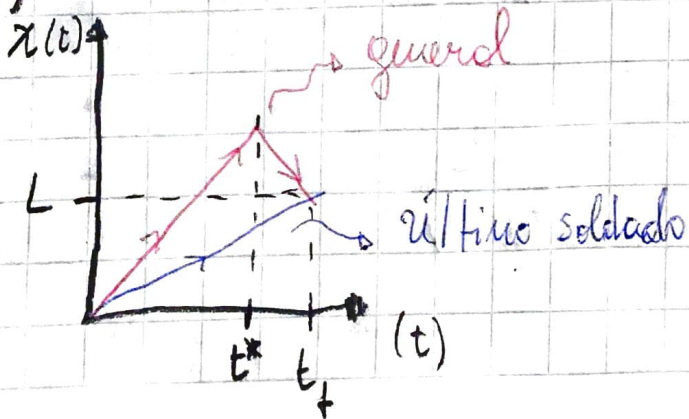 x(t)
general
L
último soldado
t*
t_f
(t)